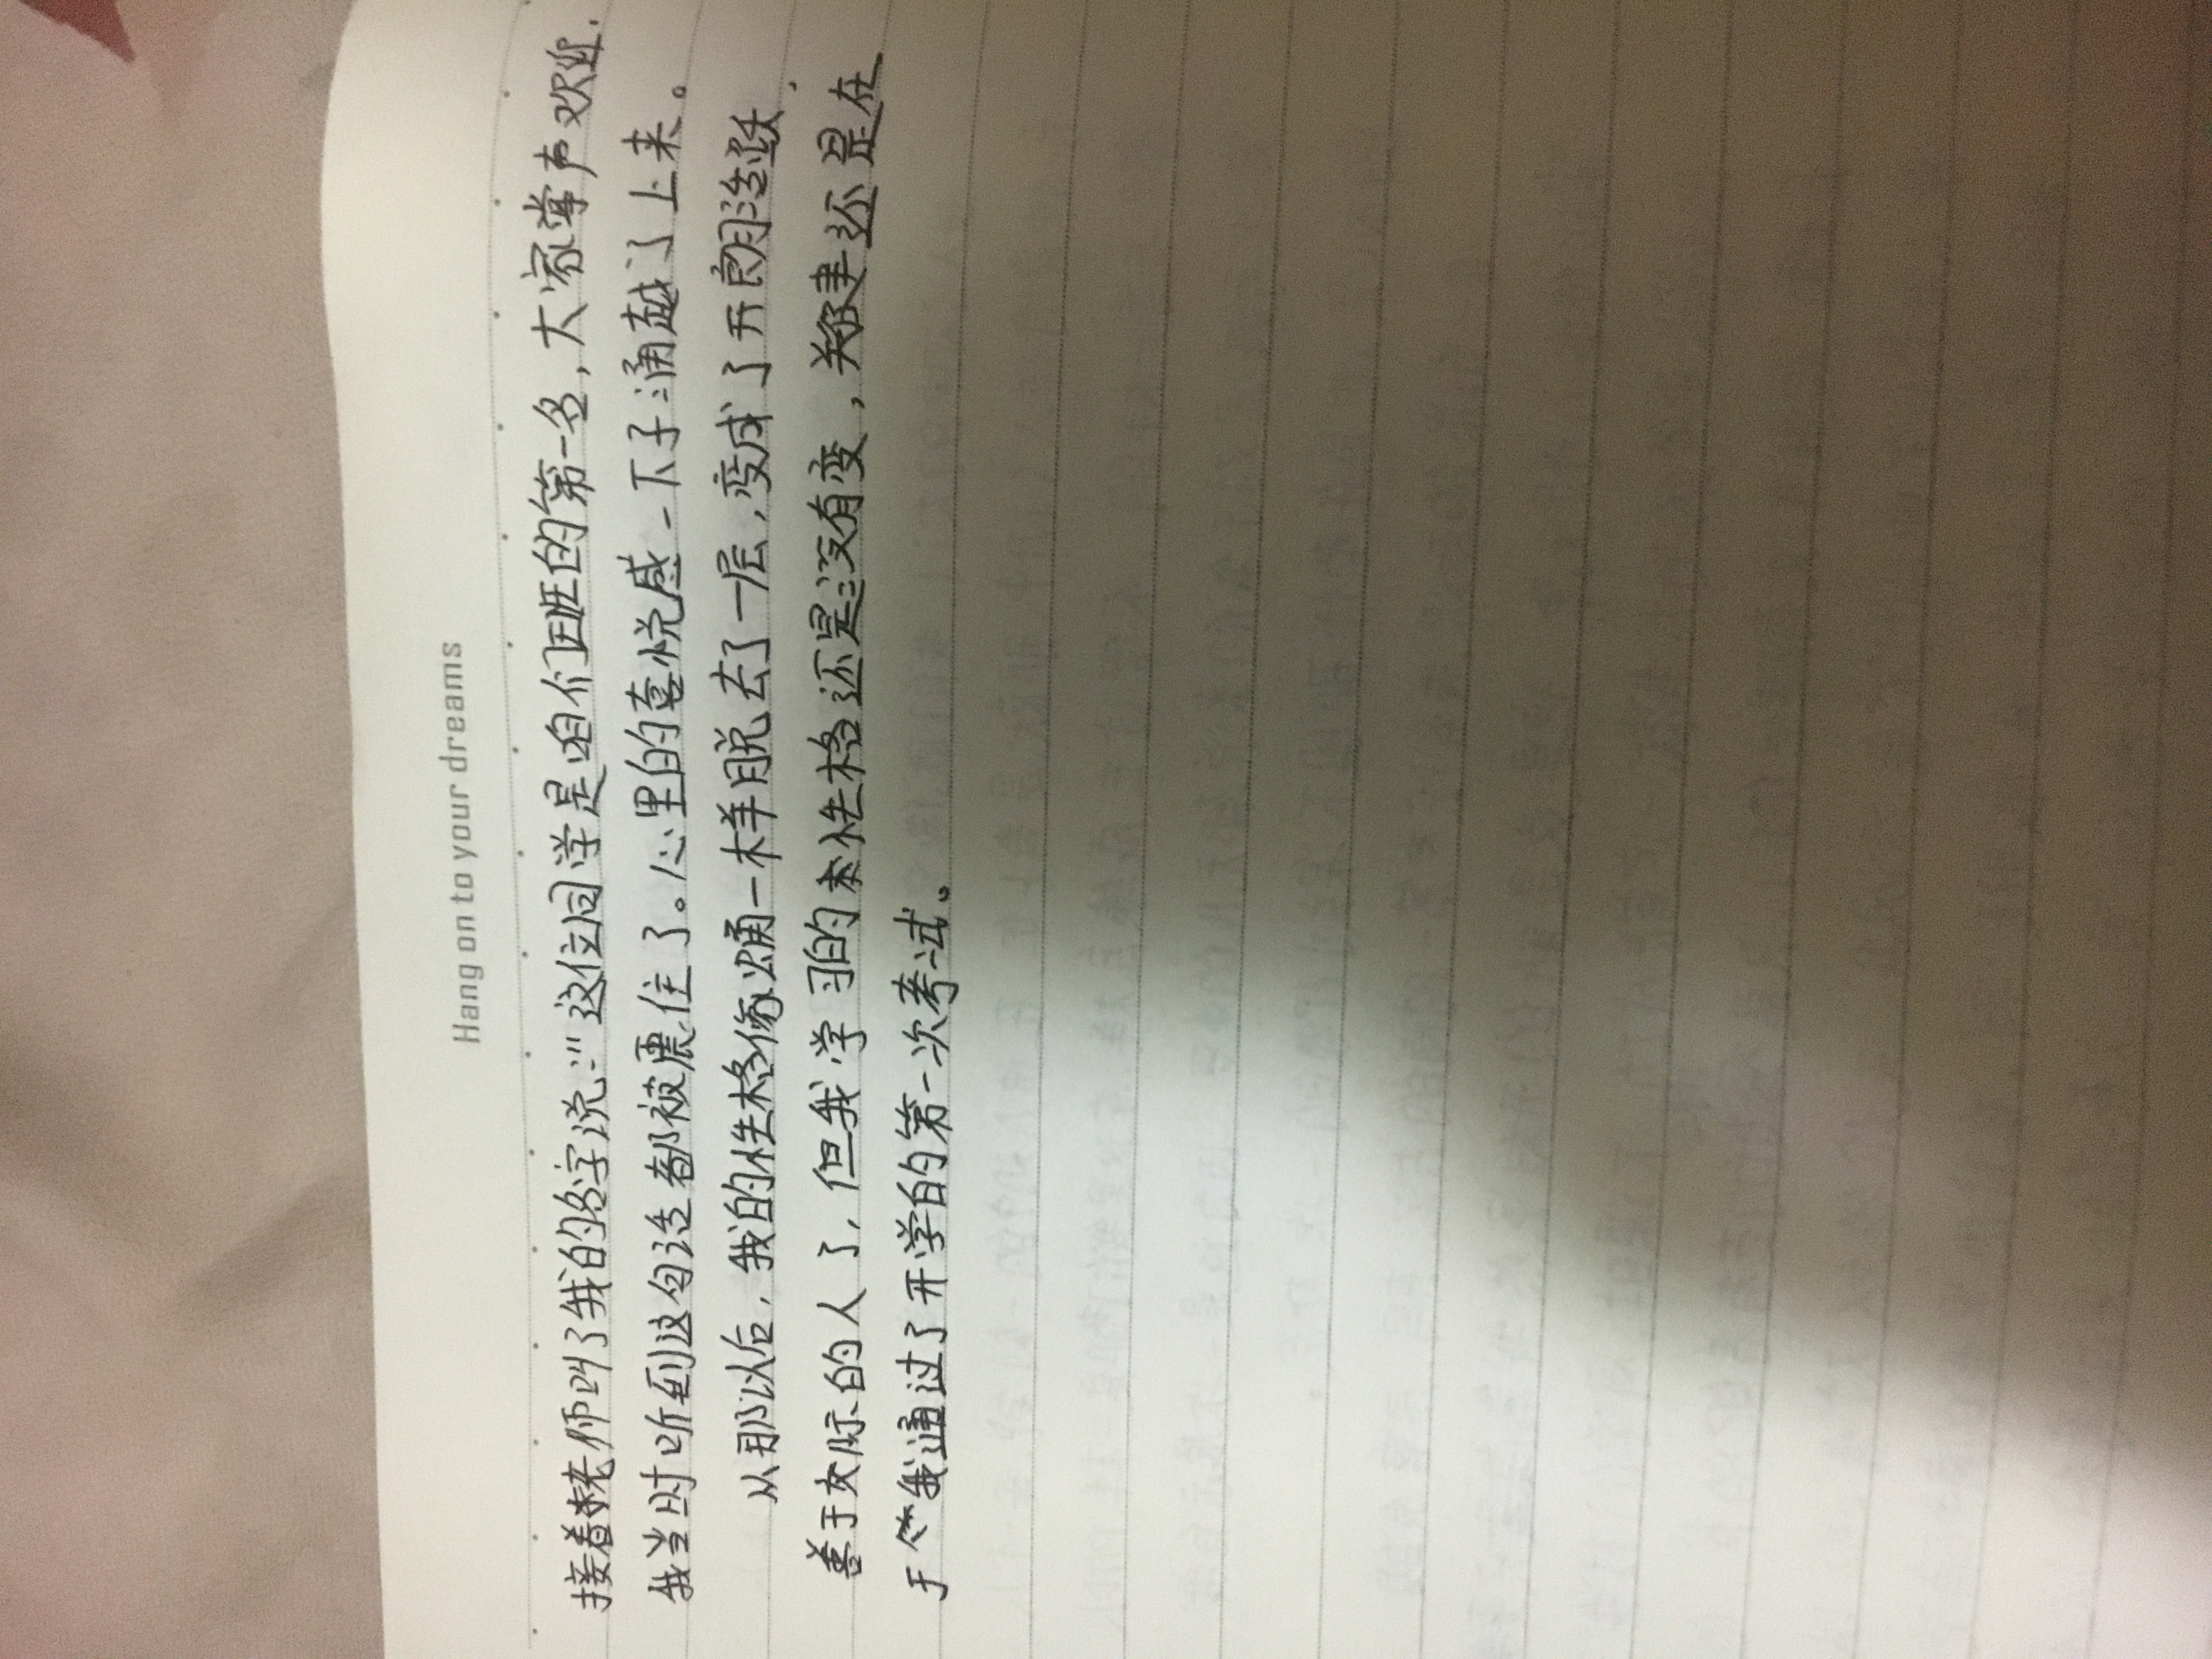 Hang on to your dreams
接着老师叫了我的名字说:"这位同学是咱们班的第一名,大家掌声欢迎.
我当时听到这句话都被震住了。心里的喜悦感一下子涌越了上来。
从那以后,我的性格像蛹一样脱去了一层,变成了开朗活跃.
善于交际的人了,但我学习的本性格还是没有变,关键还是在
于我通过了开学的第一次考试。